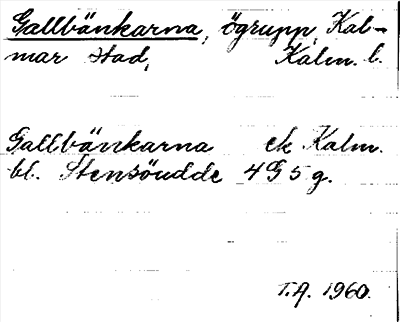 Gallbänkarna, ögrupp, Kal-
mar stad, Kalm. l.
Gallbänkarna ek Kalm.
bl. Stensöudde 4G5g.
T.A. 1960.